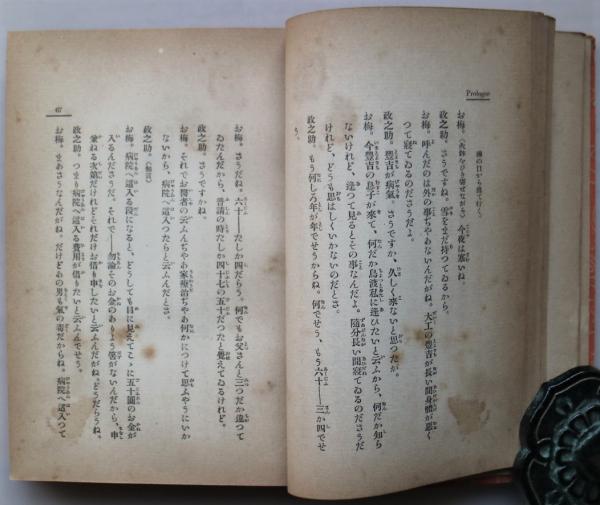 Prologue
お梅。（火鉢を引き寄せながら）今夜は寒いね。
政之助。さうですね。雪をまだ持つてゐるから。
お梅。呼んだのは外の事ぢやあないんだがね。大工の豊吉が長い間身體が惡く
つて寢てゐるのださうだよ。
政之助。豊吉が病氣。さうですか、久しく來ないと思つたが。
お梅。今豊吉の息子が來て、何だか是非私に逢ひたいと云ふから、何だか知ら
ないけれど、逢つて見るとその事なんだよ。隨分長い間寢てゐるのださうだ
けれど、どうも思はしくいかないのだとさ。
政之助。もう何しろ年が年でせうからね。何でせう、もう六十――三か四でせ
う。
67
お梅。さうだね。六十――たしか四だらう。何でもお父さんと三つだか違つて
ゐたんだから。普請の時たしか四十七の五十だつたと覺えてゐるけれど。
政之助。さうですかね。
お梅。それでお醫者の云ふんぢやあ家療治ぢやあ何かにつけて思ふやうにいか
ないから、病院へ這入つたらと云ふんだとさ。
政之助。（無言）
お梅。病院へ這入る段になると、どうしても目に見えてこゝに五十圓のお金が
入るんださうだ。それで――勿論そのお金のありよう筈がないんだから、申
兼ねる次第だけれどそれだけお借り申したいと云ふんだがね。どうだらうね。
政之助。つまり病院へ這入る費用が借りたいと云ふんでせう。
お梅。まあさうなんだがね。だけどあの男も氣の毒だからね。病院へ這入つて